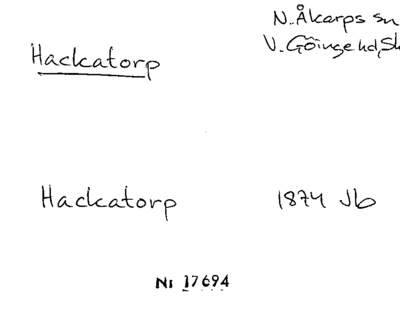 N. Åkarps sn
Hackatorp
V. Göinge hd, Sk
Hackatorp 1874 Jb
Nr 17694